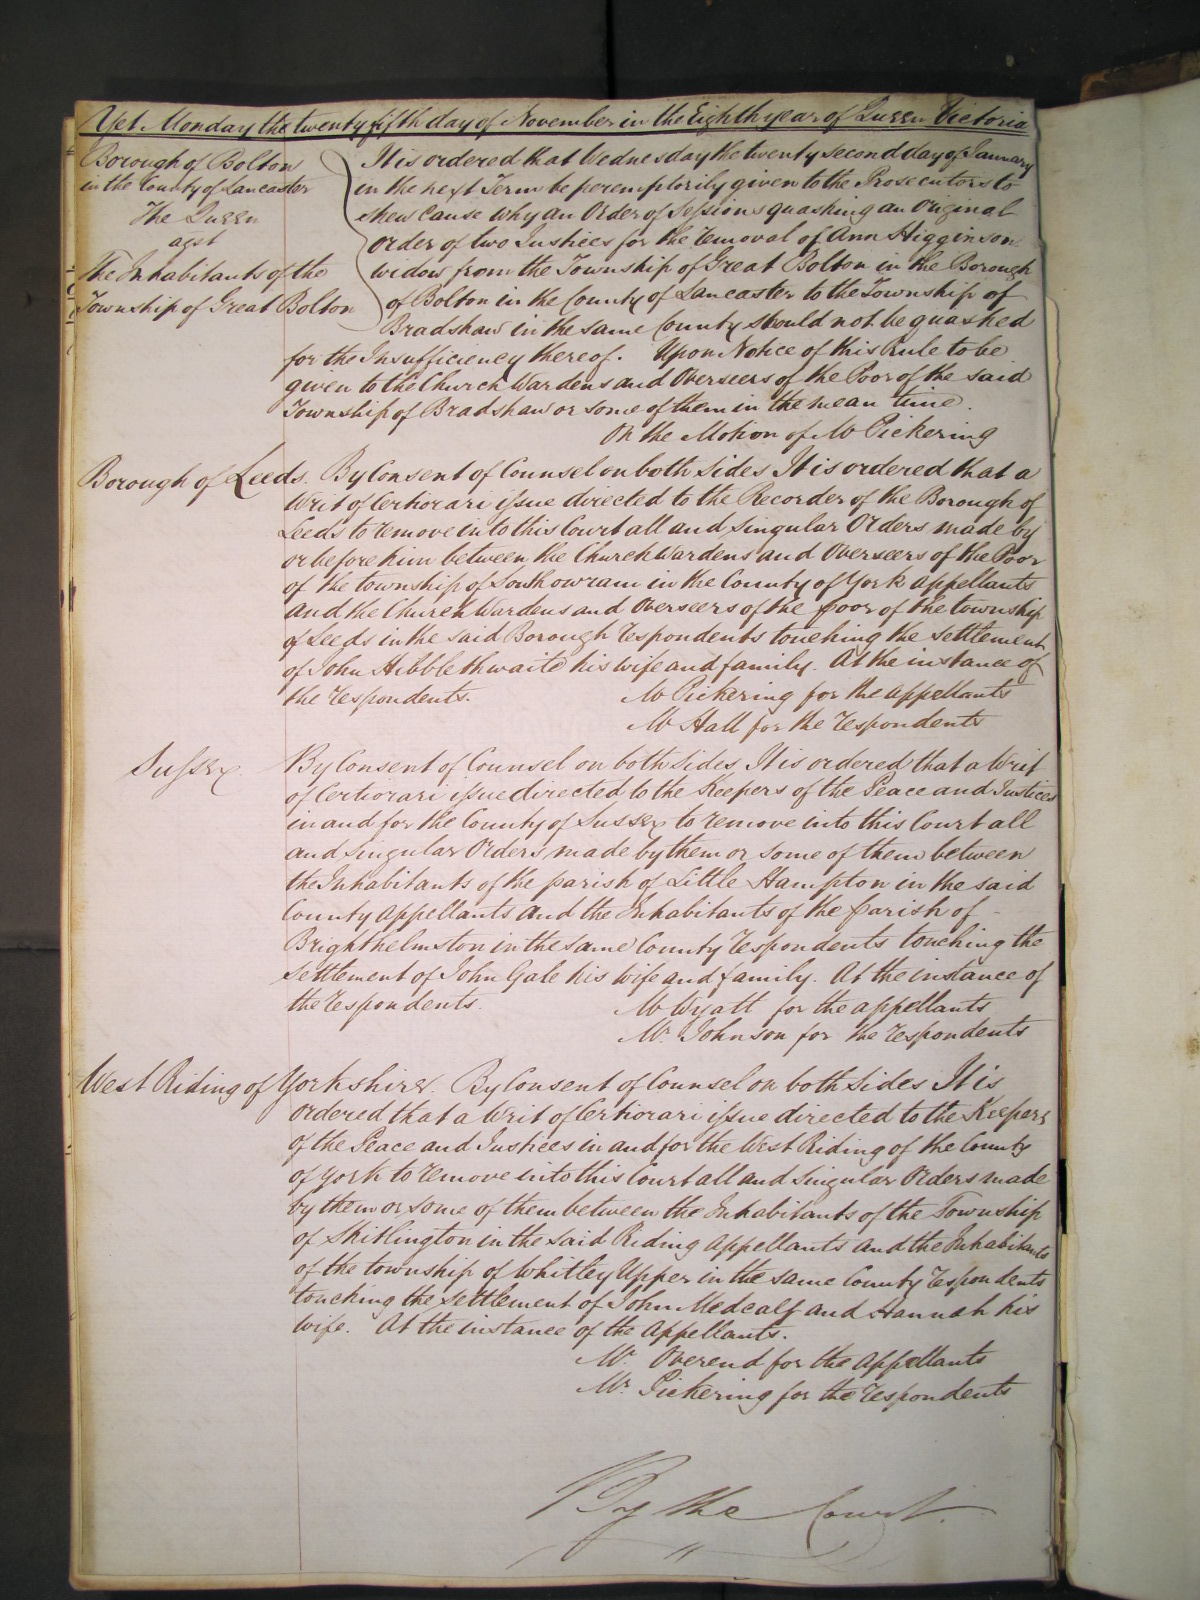 Yet Monday the twenty fifth day of November in the Eighth year of Queen Victoria
Borough of Bolton
in the County of Lancaster
The Queen
agst
The Inhabitants of the
Township of Great Bolton
It is ordered that Wednesday the twenty second day of January
in the next Term be peremptorily given to the Prosecutors to
shew Cause why an Order of Sessions quashing an Original
Order of two Justices for the removal of Ann Higginson
widow from the Township of Great Bolton in the Borough
of Bolton in the County of Lancaster to the Township of
Bradshaw in the same County should not be quashed
for the Insufficiency thereof. Upon Notice of this Rule to be
given to the Church Wardens and Overseers of the Poor of the said
Township of Bradshaw or some of them in the mean time.
On the Motion of Mr Pickering
Borough of Leeds. By Consent of Counsel on both sides It is ordered that a
Writ of Certiorari issue directed to the Recorder of the Borough of
Leeds to remove into this Court all and singular Orders made by
or before him between the Church Wardens and Overseers of the Poor
of the township of Southowram in the County of York appellants
and the Church Wardens and Overseers of the poor of the township
of Leeds in the said Borough respondents touching the settlement
of John Hibblethwaite his wife and family. At the instance of
the respondents.
Mr Pickering for the appellants
Mr Hall for the respondents
Sussex
By Consent of Counsel on both sides It is ordered that a Writ
of Certiorari issue directed to the Keepers of the Peace and Justices
in and for the County of Sussex to remove into this Court all
and singular Orders made by them or some of them between
the Inhabitants of the parish of Little Hampton in the said
County appellants and the Inhabitants of the parish of -
Brighthelmston in the same County respondents touching the
settlement of John Gale his wife and family. At the instance of
the respondents.
Mr Wyatt for the appellants
Mr. Johnson for the respondents
West Riding of Yorkshire. By Consent of Counsel on both sides It is
ordered that a Writ of Certiorari issue directed to the Keepers
of the Peace and Justices in and for the West Riding of the County
of York to remove into this Court all and singular Orders made
by them or some of them between the Inhabitants of the Township
of Shitlington in the said Riding appellants and the Inhabitants
of the township of Whitley Upper in the same County respondents
touching the settlement of John Medcalf and Hannah his
wife. At the instance of the appellants.
Mr. Overend for the appellants
Mr. Pickering for the respondents
By the Court.